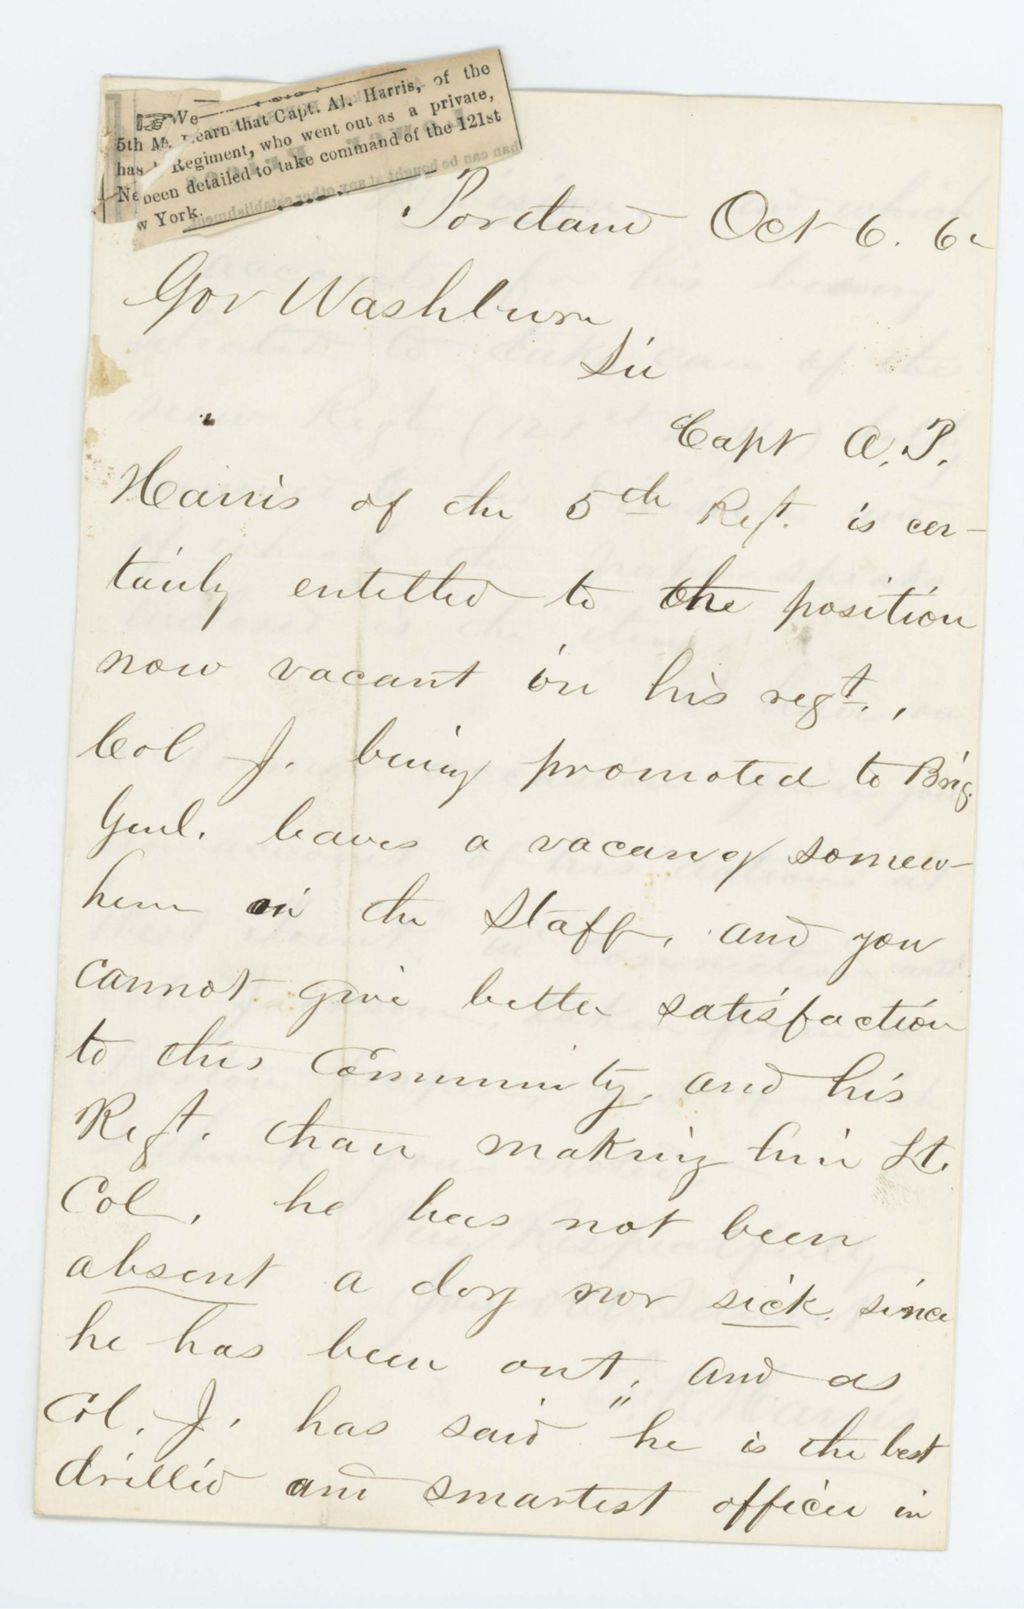 We learn that Capt. Al. Harris, of the
5th Me. Regiment, who went out as a private,
has been detailed to take command of the 121st
New York.
Portland Oct 6. 62
Gov Washburn
Sir
Capt A. P.
Harris of the 5th Regt. is cer-
tainly entitled to the position
now vacant in his regt.,
Col J. being promoted to Brig.
Genl. leaves a vacancy somew-
here in the Staff, and you
cannot give better satisfaction
to this Community, and his
Regt. than making him Lt.
Col, he has not been
absent a day nor sick since
he has been out, and as
Col. J. has said "he is the best
drilled and smartest officer in